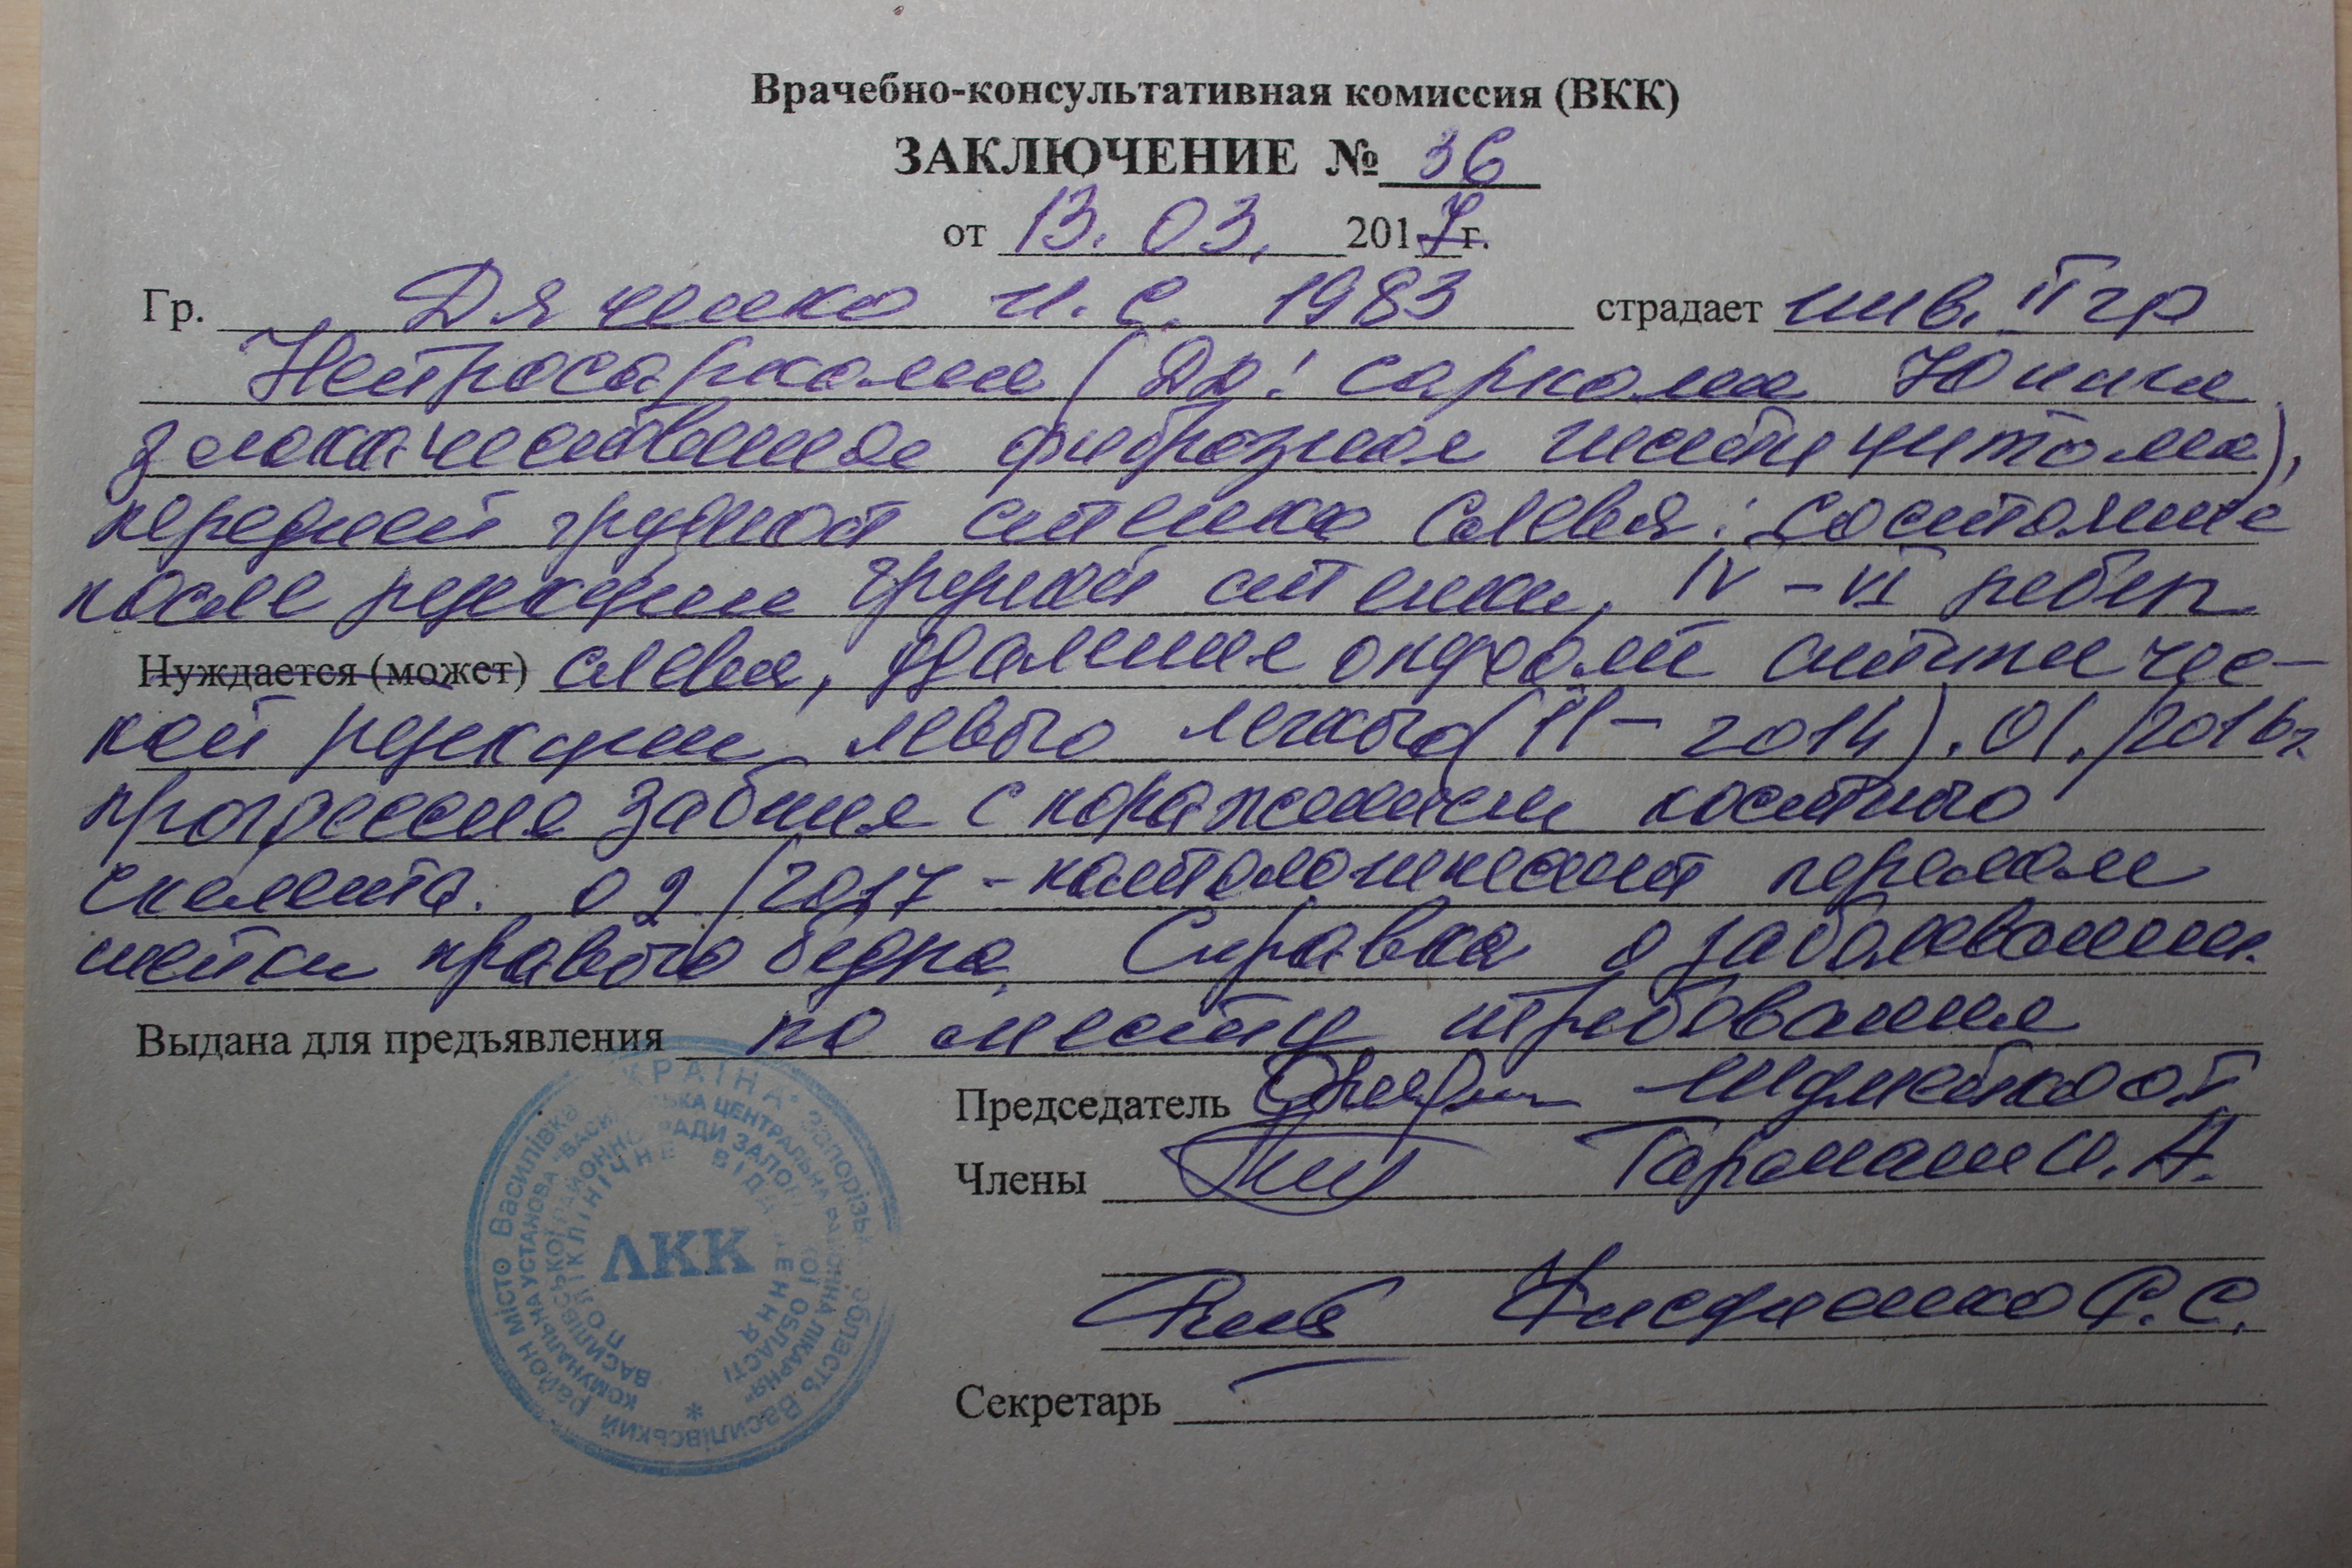 Врачебно-консультативная комиссия (ВКК)
ЗАКЛЮЧЕНИЕ № 36
от 13. 03. 2017 г.
Гр. Дяченко И. С. 1983 страдает инв. II гр
Нейросаркома (ДД: саркома Юинга
злокачественная фиброзная гистицитома),
передней грудной стенки слева: состояние
после резекции грудной стенки, IV - VI ребер
Нуждается (может) слева, удаления атипичес-
кой резекции левого легкого (II - 2014). 01./2016г.
прогрессия забния с поражением костного
скелета. 02/2017 - патологический перелом
шейки правого бедра. Справка о заболевании.
Выдана для предъявления по месту требования
Председатель Шумейко
Члены Гароман И. А.
Р. С.
Секретарь
УКРАЇНА * Запорізька область Василівський район місто Василівка
КОМУНАЛЬНА УСТАНОВА "ВАСИЛІВСЬКА ЦЕНТРАЛЬНА РАЙОННА ЛІКАРНЯ"
ВАСИЛІВСЬКОЇ РАЙОННОЇ РАДИ ЗАПОРІЗЬКОЇ ОБЛАСТІ
ПОЛІКЛІНІЧНЕ ВІДДІЛЕННЯ
ЛКК